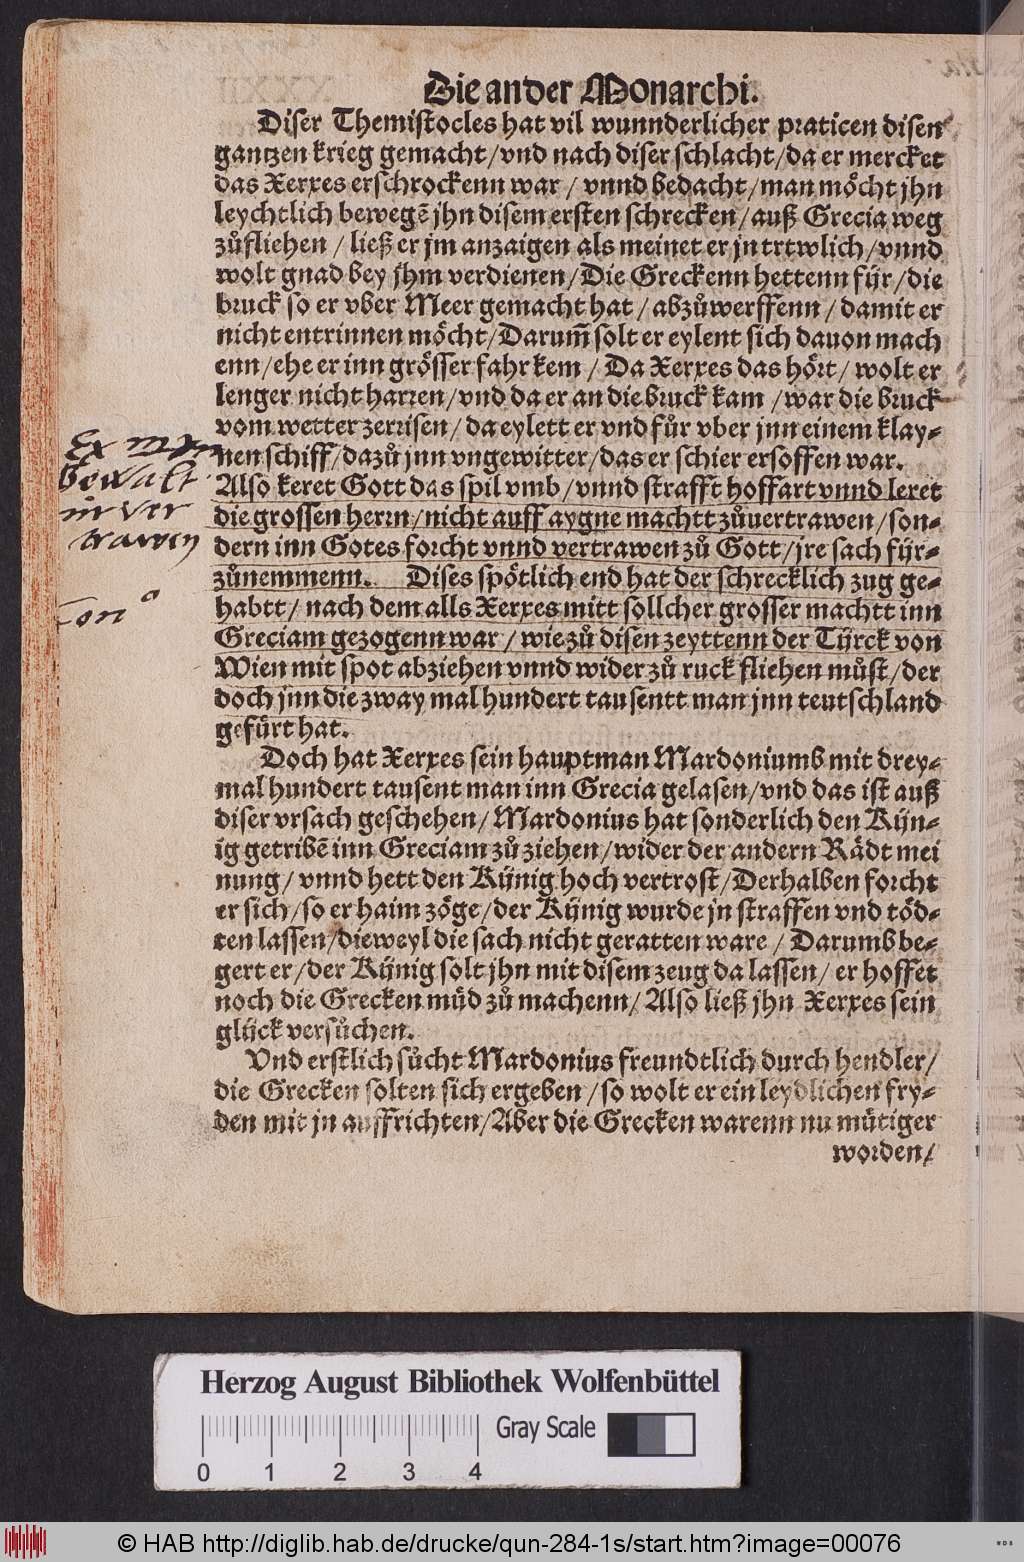 Die ander Monarchi.
Diser Themistocles hat vil wunnderlicher praticen disen
gantzen krieg gemacht/vnd nach diser schlacht/da er mercket
das Xerxes erschrockenn war / vnnd bedacht/man möcht jhn
leychtlich bewegẽ jhn disem ersten schrecken/auß Grecia weg
zůfliehen / ließ er jm anzaigen als meinet er jn trtwlich/vnnd
wolt gnad bey jhm verdienen/Die Greckenn hettenn für/die
bruck so er vber Meer gemacht hat / abzůwerffenn / damit er
nicht entrinnen möcht/Darum̃ solt er eylent sich dauon mach
enn/ehe er inn grösser fahr kem / Da Xerxes das hört/ wolt er
lenger nicht harren/vnd da er an die bruck kam /war die bruck
vom wetter zerrisen/da eylett er vnd fůr vber jnn einem klay-
nen schiff/dazů jnn vngewitter/das er schier ersoffen war.
Also keret Gott das spil vmb/vnnd strafft hoffart vnnd leret
die grossen herrn/nicht auff aygne machtt zůuertrawen/son-
dern inn Gotes forcht vnnd vertrawen zů Gott/jre sach für-
zůnemmenn. Dises spötlich end hat der schrecklich zug ge-
habtt/nach dem alls Xerxes mitt sollcher grosser machtt inn
Greciam gezogenn war/wie zů disen zeyttenn der Türck von
Wien mit spot abziehen vnnd wider zů ruck fliehen můst/der
doch jnn die zway mal hundert tausentt man jnn teutschland
gefürt hat.
Doch hat Xerxes sein hauptman Mardoniumb mit drey-
mal hundert tausent man inn Grecia gelasen/vnd das ist auß
diser vrsach geschehen/Mardonius hat sonderlich den Kün-
ig getribẽ inn Greciam zů ziehen/wider der andern Rädt mei
nung/vnnd hett den Künig hoch vertrost/Derhalben forcht
er sich/so er haim zöge/der Künig wurde jn straffen vnd töd-
ten lassen/dieweyl die sach nicht geratten ware / Darumb be-
gert er/der Künig solt jhn mit disem zeug da lassen/ er hoffet
noch die Grecken müd zů machenn/Also ließ jhn Xerxes sein
glück versůchen.
Vnd erstlich sůcht Mardonius freundtlich durch hendler/
die Grecken solten sich ergeben/so wolt er ein leydlichen fry-
den mit jn auffrichten/Aber die Grecken warenn nu mütiger
worden/
Gewalt
in ver
trawen
Herzog August Bibliothek Wolfenbüttel
Gray Scale
0 1 2 3 4
© HAB http://diglib.hab.de/drucke/qun-284-1s/start.htm?image=00076